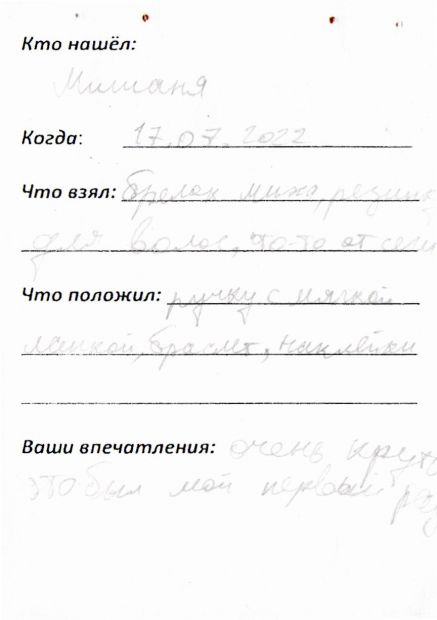 Кто нашёл:
Мишаня
Когда: 17.07.2022
Что взял: брелок миха, резинк
для волос,
Что положил: ручку с мягкой
лапкой, браслет, наклейки
Ваши впечатления: очень круто
это был мой первый раз